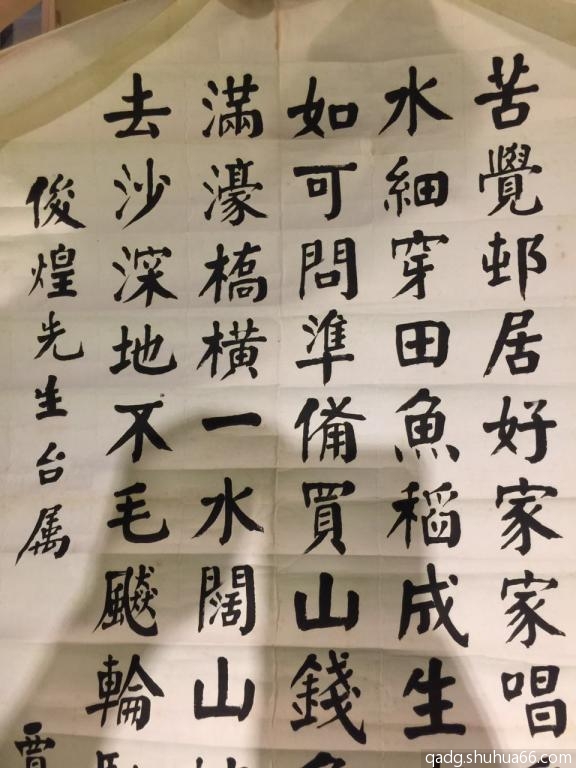 苦覺邨居好家家唱
水細穿田魚稻成生
如可問準備買山錢
滿濠橋橫一水闊山
去沙深地不毛飈輪
俊煌先生台属
qadg.shuhua66.com